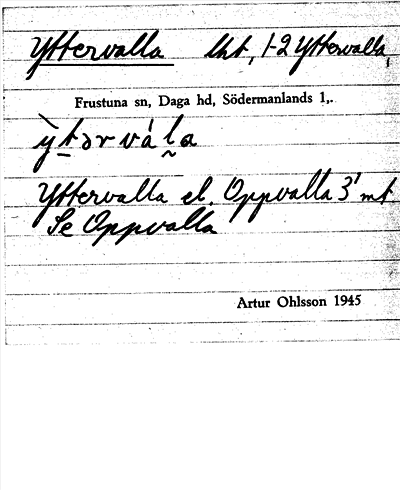 Yttervalla lht, 1-2 Yttervalla,
Frustuna sn, Daga hd, Södermanlands l,.
ỳtərvála
Yttervalla el. Oppvalla 3' mt
Se Oppvalla
Artur Ohlsson 1945